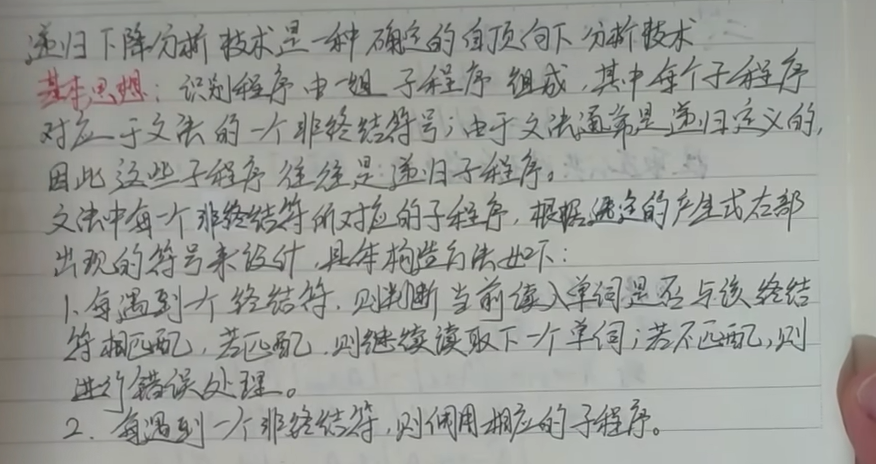 递归下降分析技术是一种确定的自顶向下分析技术
基本思想：识别程序由一组子程序组成，其中每个子程序
对应于文法的一个非终结符号；由于文法通常是递归定义的，
因此这些子程序往往是递归子程序。
文法中每一个非终结符所对应的子程序，根据选定的产生式右部
出现的符号来设计，具体构造方法如下：
1. 每遇到一个终结符，则判断当前读入单词是否与该终结
符相匹配，若匹配，则继续读取下一个单词；若不匹配，则
进行错误处理。
2. 每遇到一个非终结符，则调用相应的子程序。